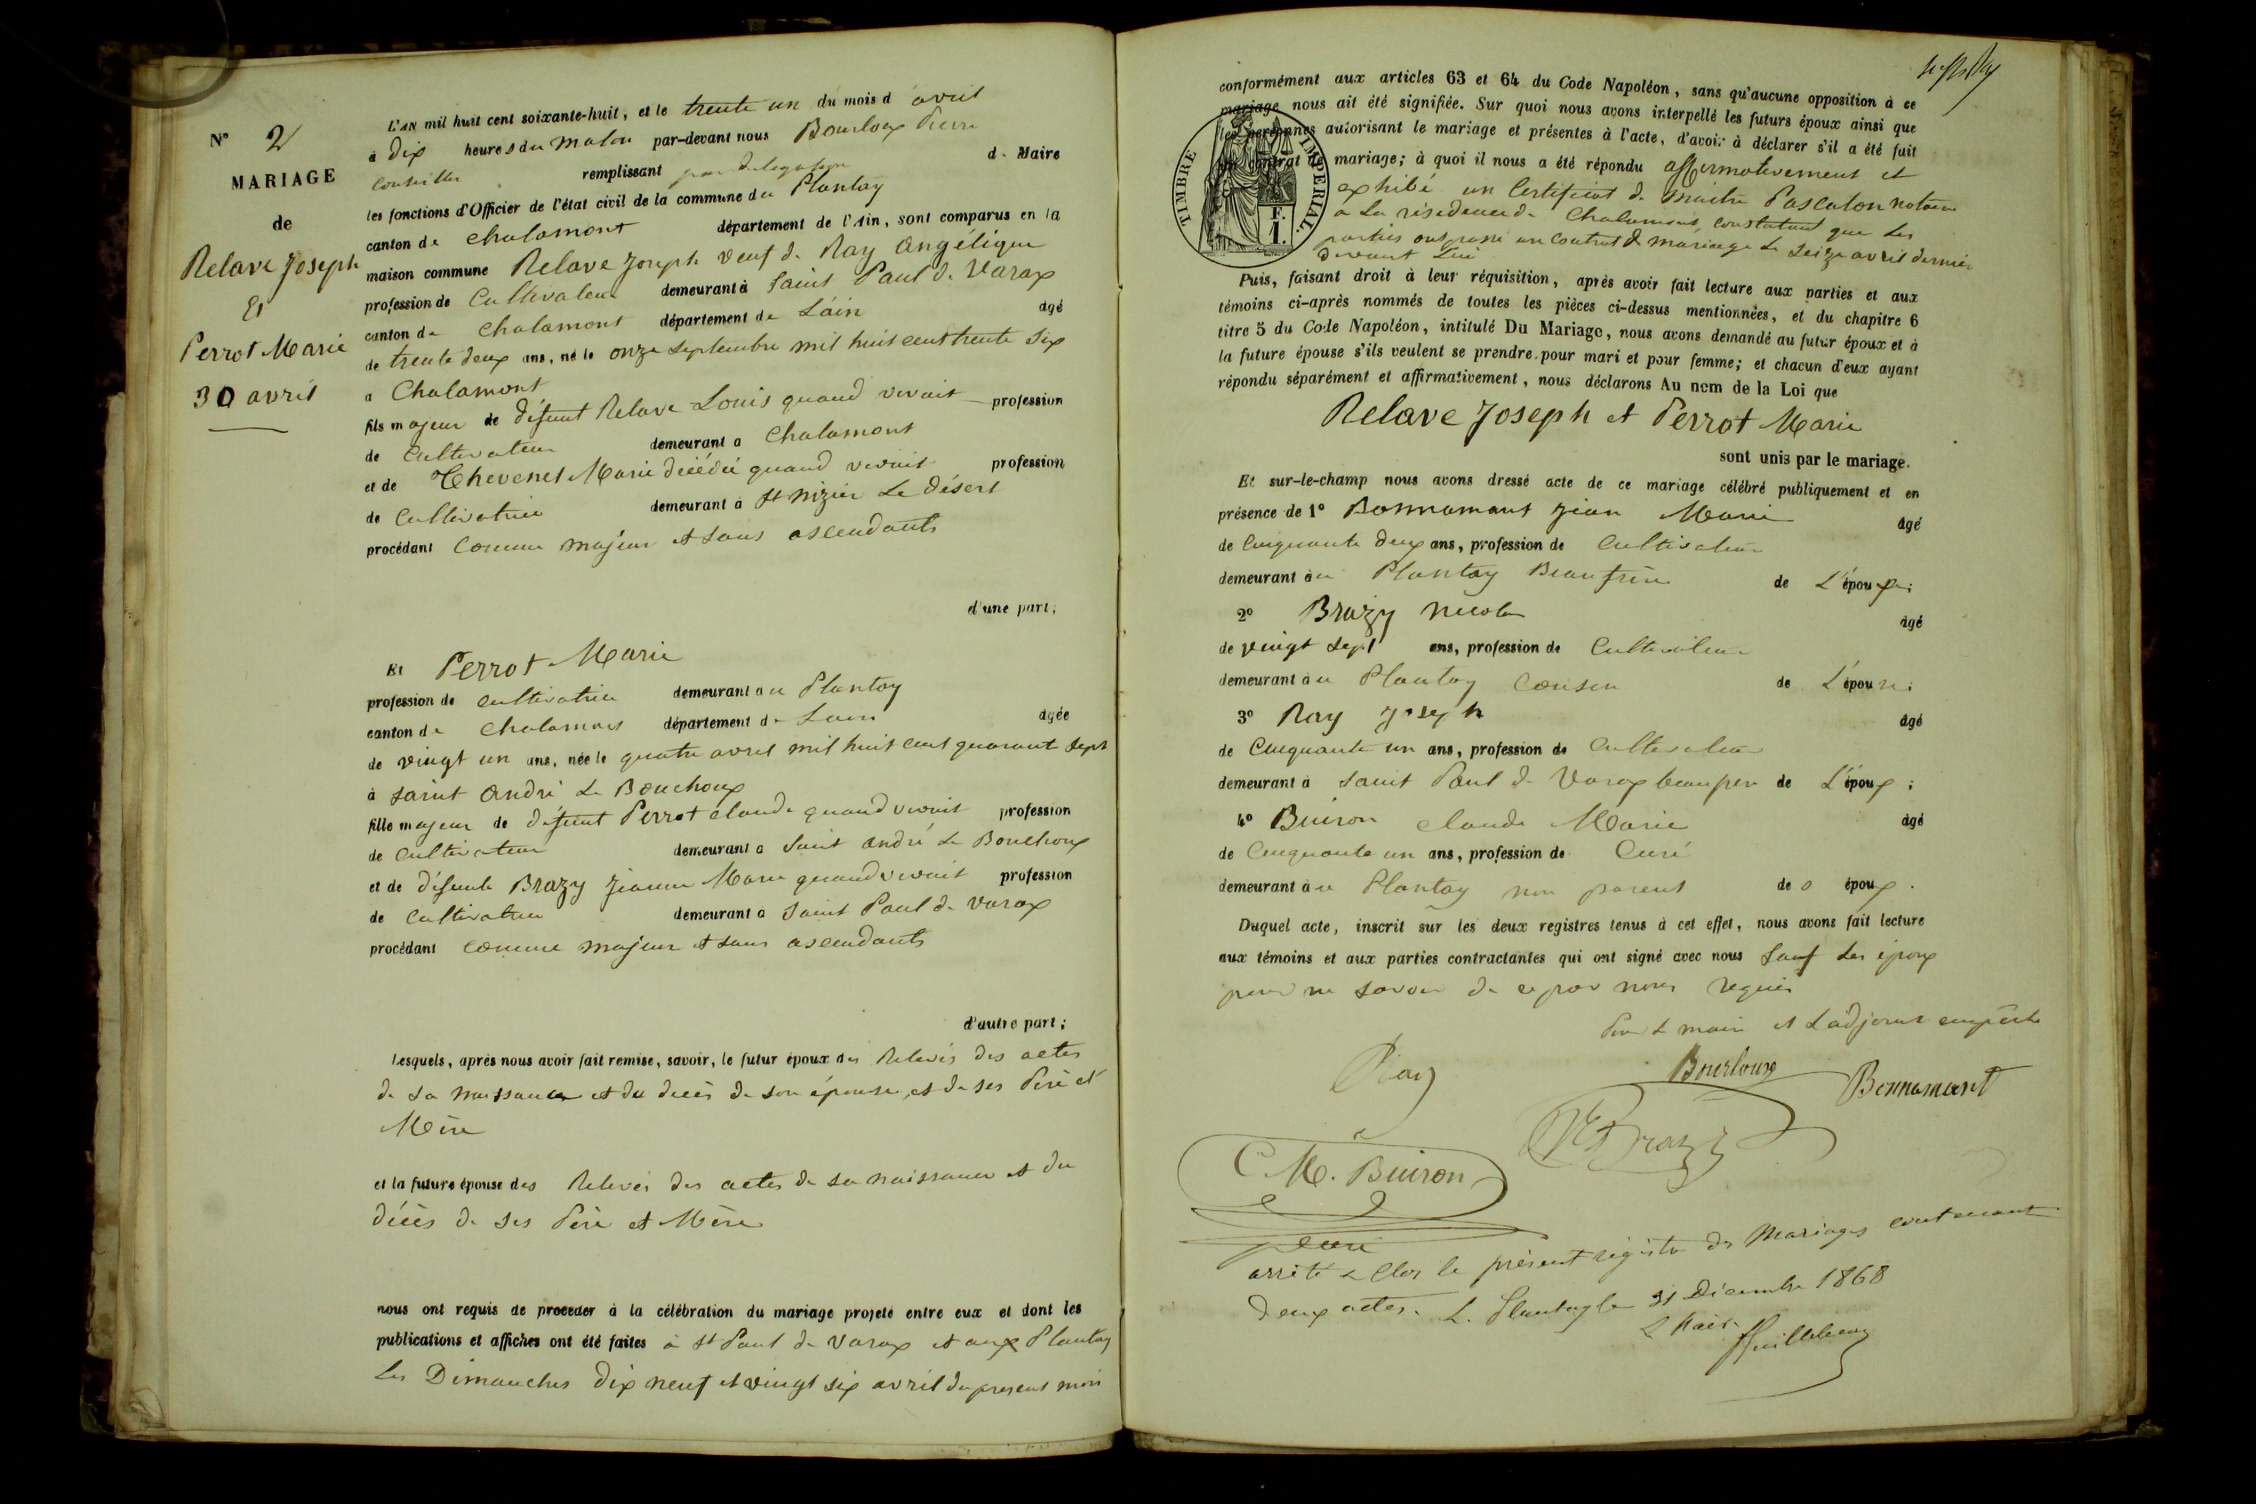 N° 2
MARIAGE
de
Relave Joseph
Et
Perrot Marie
30 avril
L'AN mil huit cent soixante-huit, et le trente un du mois d avril
à dix heures du matin par-devant nous Bourloux Pierre
Conseiller remplissant par délégation d. Maire
les fonctions d'Officier de l'état civil de la commune du Plantay
canton de Chalamont département de l'Ain, sont comparus en la
maison commune Relave Joseph veuf de Ray Angélique
profession de Cultivateur demeurant à Saint Paul de Varax
canton de Chalamont département de L'ain âgé
de trente deux ans, né le onze septembre mil huit cent trente six
a Chalamont
fils majeur de défunt Relave Louis quand vivait profession
de Cultivateur demeurant a Chalamont
et de Thevenet Marie décédée quand vivait profession
de Cultivatrice demeurant à St nizier Le Désert
procédant Comme majeur et sans ascendants
d'une part;
Et Perrot Marie
profession de cultivatrice demeurant au Plantay
canton de Chalamont département de Lain âgée
de vingt un ans, née le quatre avril mil huit cent quarante sept
à saint andré Le Bouchoux
fille majeur de défunt Perrot claude quand vivait profession
de Cultivateur demeurant a Saint andré Le Bouchoux
et de défunte Brazy Jeanne Marie quand vivait profession
de Cultivatrice demeurant a Saint Paul de Varax
procédant comme majeur et sans ascendants
d'autre part;
Lesquels, après nous avoir fait remise, savoir, le futur époux des Relevés des actes
de sa naissance et du décès de son épouse, et de ses Père et
Mère
et la future épouse des Relevés des actes de sa naissance et du
décès de ses Père et Mère
nous ont requis de procéder à la célébration du mariage projeté entre eux et dont les
publications et affiches ont été faites à St Paul de Varax et aux Plantay
Les Dimanches dix neuf et vingt six avril du present mois
conformément aux articles 63 et 64 du Code Napoléon, sans qu'aucune opposition à ce
mariage nous ait été signifiée. Sur quoi nous avons interpellé les futurs époux ainsi que
les personnes autorisant le mariage et présentes à l'acte, d'avoir à déclarer s'il a été fait
un contrat de mariage; à quoi il nous a été répondu affirmativement et
exhibé un Certificat de Maitre Pascalon notaire
a La résidence de Chalamont, constatant que Les
parties ont passé un Contrat de mariage Le seize avril dernier
devant Lui
TIMBRE IMPERIAL.
F.
1.
Puis, faisant droit à leur réquisition, après avoir fait lecture aux parties et aux
témoins ci-après nommés de toutes les pièces ci-dessus mentionnées, et du chapitre 6
titre 5 du Code Napoléon, intitulé Du Mariage, nous avons demandé au futur époux et à
la future épouse s'ils veulent se prendre pour mari et pour femme; et chacun d'eux ayant
répondu séparément et affirmativement, nous déclarons Au nom de la Loi que
Relave Joseph et Perrot Marie
sont unis par le mariage.
Et sur-le-champ nous avons dressé acte de ce mariage célébré publiquement et en
présence de 1° Bonnamant Jean Marie âgé
de Cinquante deux ans, profession de Cultivateur
demeurant au Plantay Beaufrère de L'époux;
2° Brazy Nicolas âgé
de vingt sept ans, profession de Cultivateur
demeurant au Plantay Cousin de L'épouse;
3° Ray Joseph âgé
de Cinquante un ans, profession de Cultivateur
demeurant à saint Paul de Varax beaupere de L'époux;
4° Buiron claude Marie âgé
de Cinquante un ans, profession de Curé
demeurant au Plantay non parent de époux.
Duquel acte, inscrit sur les deux registres tenus à cet effet, nous avons fait lecture
aux témoins et aux parties contractantes qui ont signé avec nous sauf Les époux
pour ne savoir de ce par nous requis
Pour Le maire et L'adjoint empêchés
Ray
Bourloux
Bonnamant
N Brazy
C. M. Buiron
curé
arrêté & Clos le présent registre des Mariages contenant
deux actes. L. Plantay le 31 Décembre 1868
L Maire